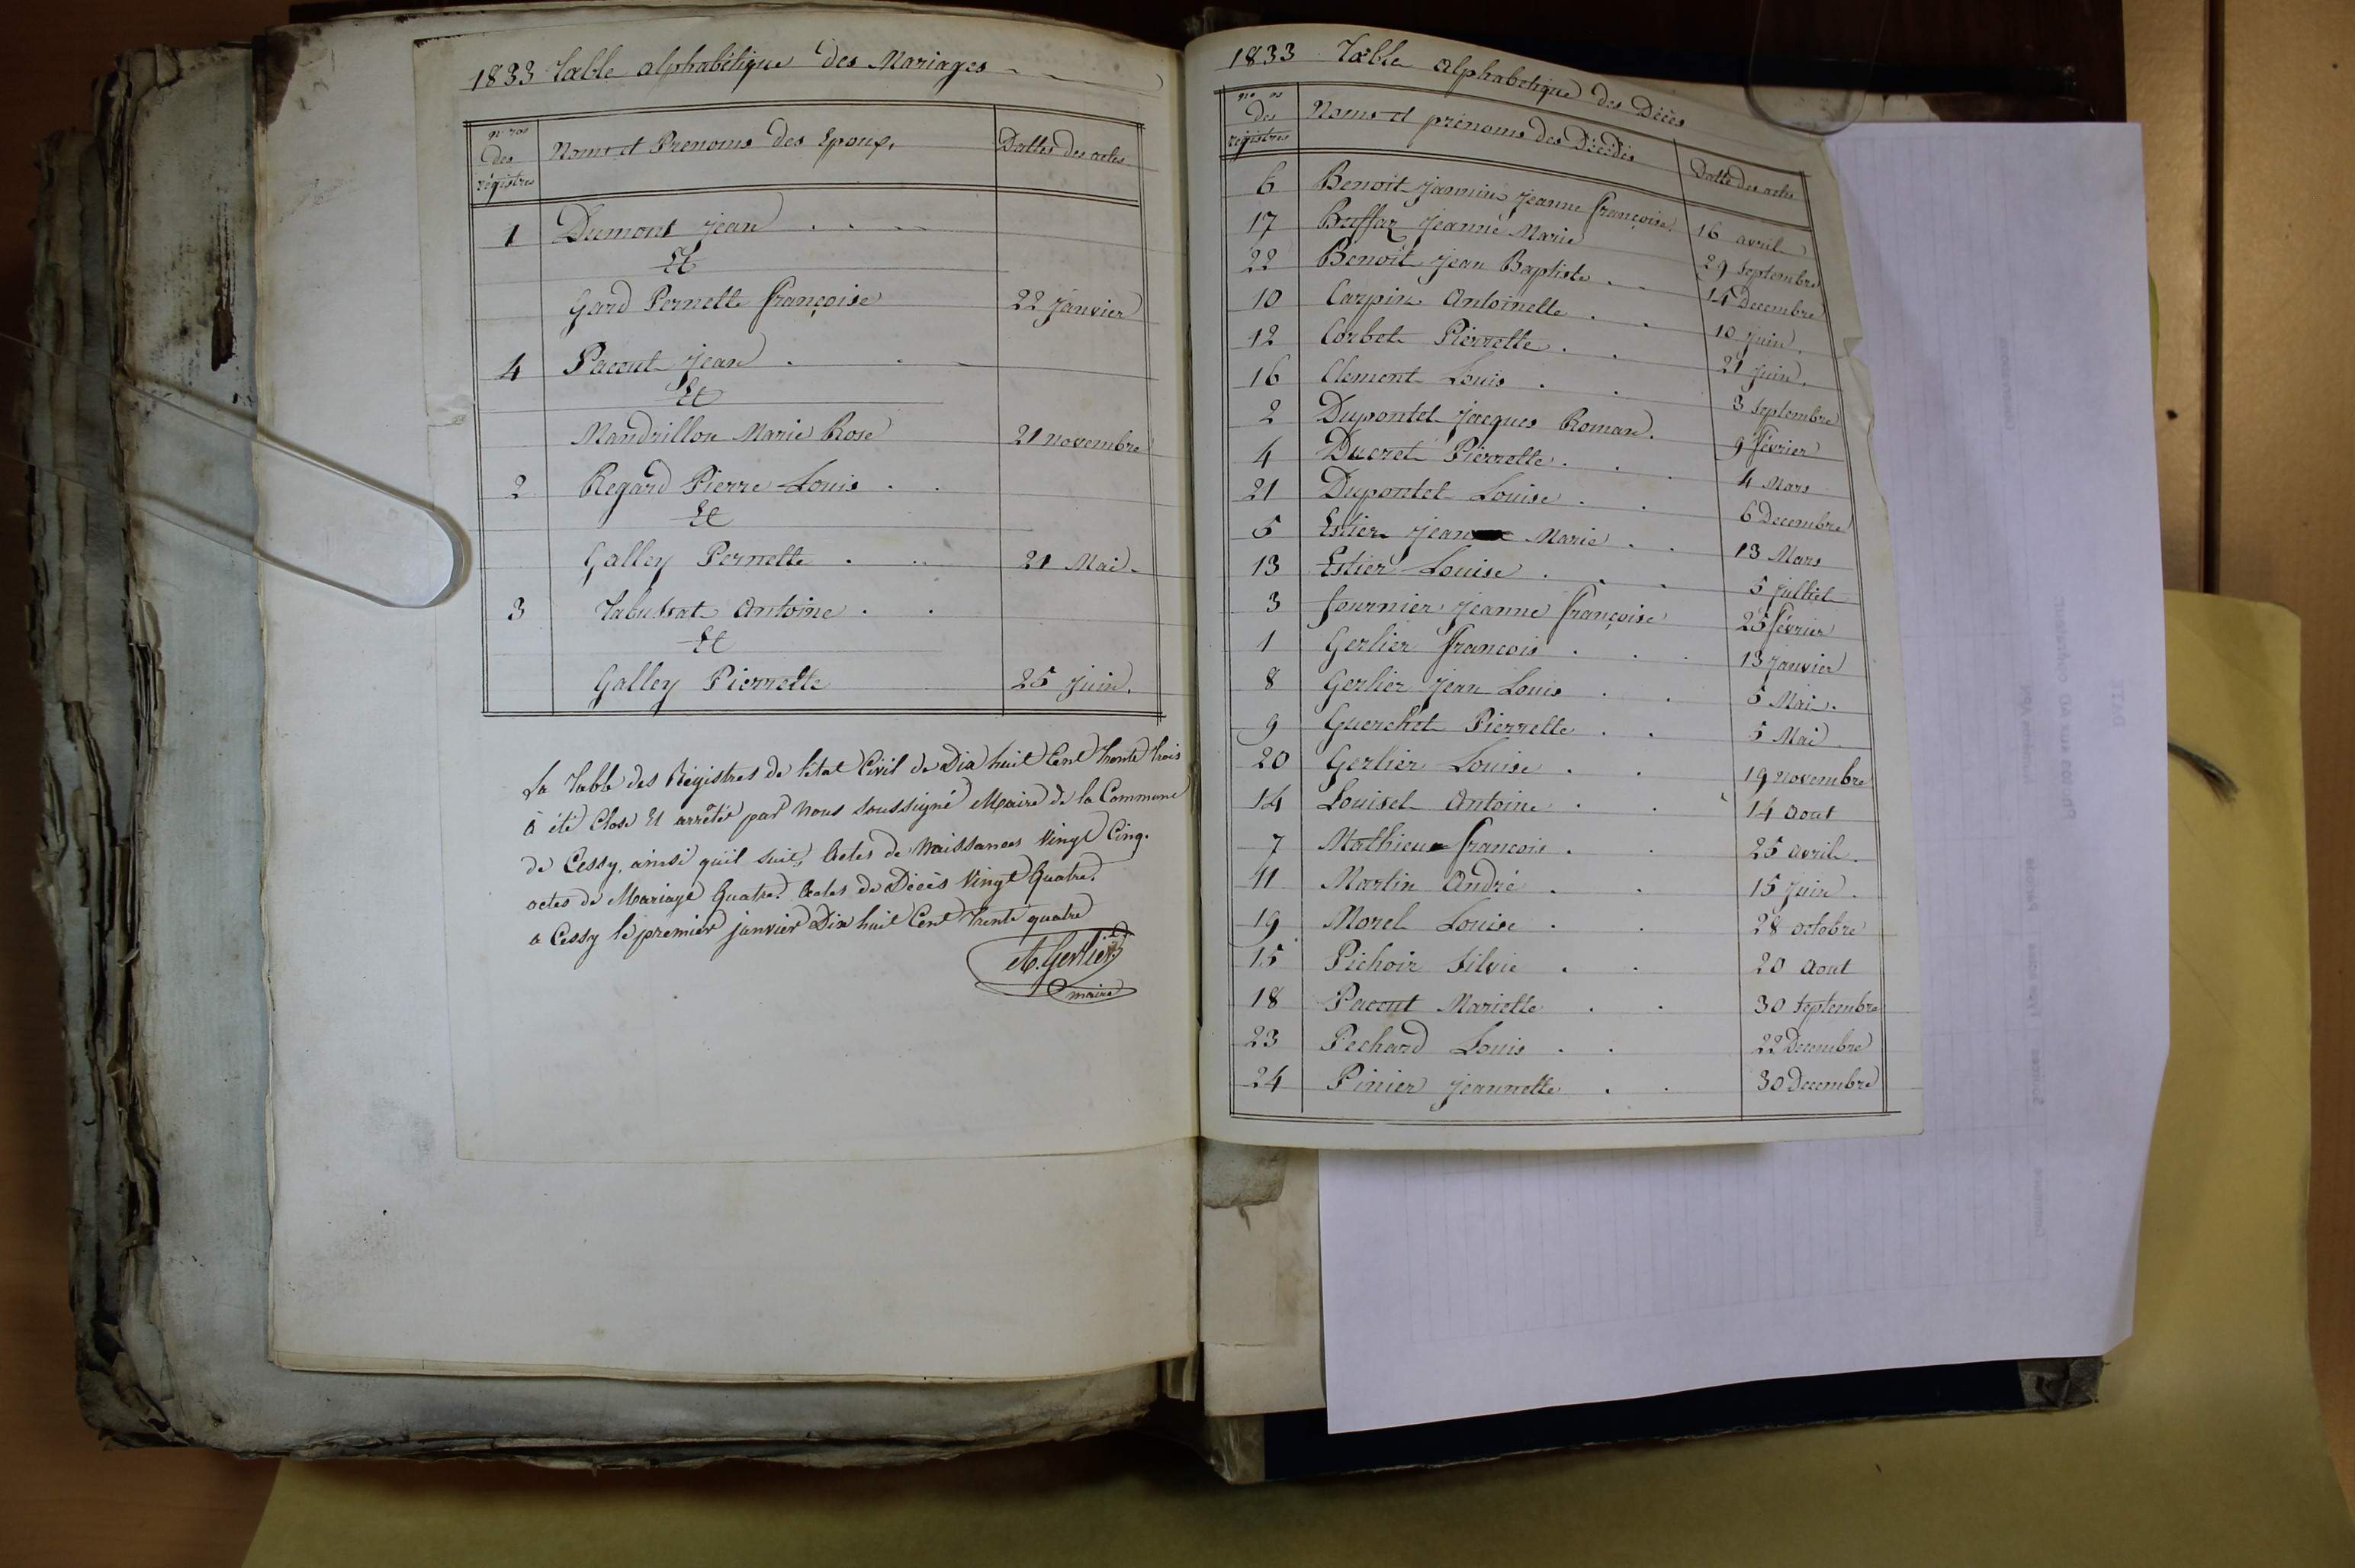 1833 Table alphabétique des Mariages
nos
des
régistres
Noms et Prenoms des Epoux.
Dattes des actes
1 Dumont jean
Et
Gard Pernette françoise 22 janvier
4 Pacout jean
Et
Mandrillon Marie Rose 21 novembre
2 Regard Pierre Louis
Et
Galley Pernette 21 Mai.
3 Tabussat Antoine
Et
Galley Pierrette 25 juin.
La Table des Régistres de l'état Civil de Dix huit Cent Trente trois
à été Close Et arrêtée par nous soussigné Maire de la Commune
de Cessy, ainsi qu'il suit, Actes de Naissances Vingt Cinq.
actes de Mariage Quatre. Actes de Décès Vingt Quatre.
a Cessy le premier janvier Dix huit Cent Trente quatre
Gerlier
maire
1833 Table alphabetique des Décès
nos
des
régistres
Noms et prénoms des Décédés
Datte des actes
6 Benoit jeanne françoise 16 avril
17 Buffaz jeanne Marie 29 septembre
22 Benoit jean Baptiste 14 Decembre
10 Carpin Antoinette 10 juin.
12 Corbet Pierrette 21 juin.
16 Clement Louis 3 septembre
2 Dupontet jacques Roman. 9 février
4 Ducret Pierrette 4 Mars
21 Dupontet Louise 6 Decembre
5 Estier jean Marie 13 Mars
13 Estier Louise 5 julliet
3 fournier jeanne françoise 25 février
1 Gerlier francois 13 janvier
8 Gerlier jean Louis 5 Mai.
9 Guerchet Pierrette 5 Mai
20 Gerlier Louise 19 novembre
14 Louiset Antoine 14 aout
7 Mathieu francois 25 avril.
11 Martin André 15 juin.
19 Morel Louise 28 octobre
15 Pichoir Silvie 20 Aout
18 Pacout Mariette 30 septembre
23 Pechard Louis 22 Decembre
24 Pinier jeannette 30 Decembre